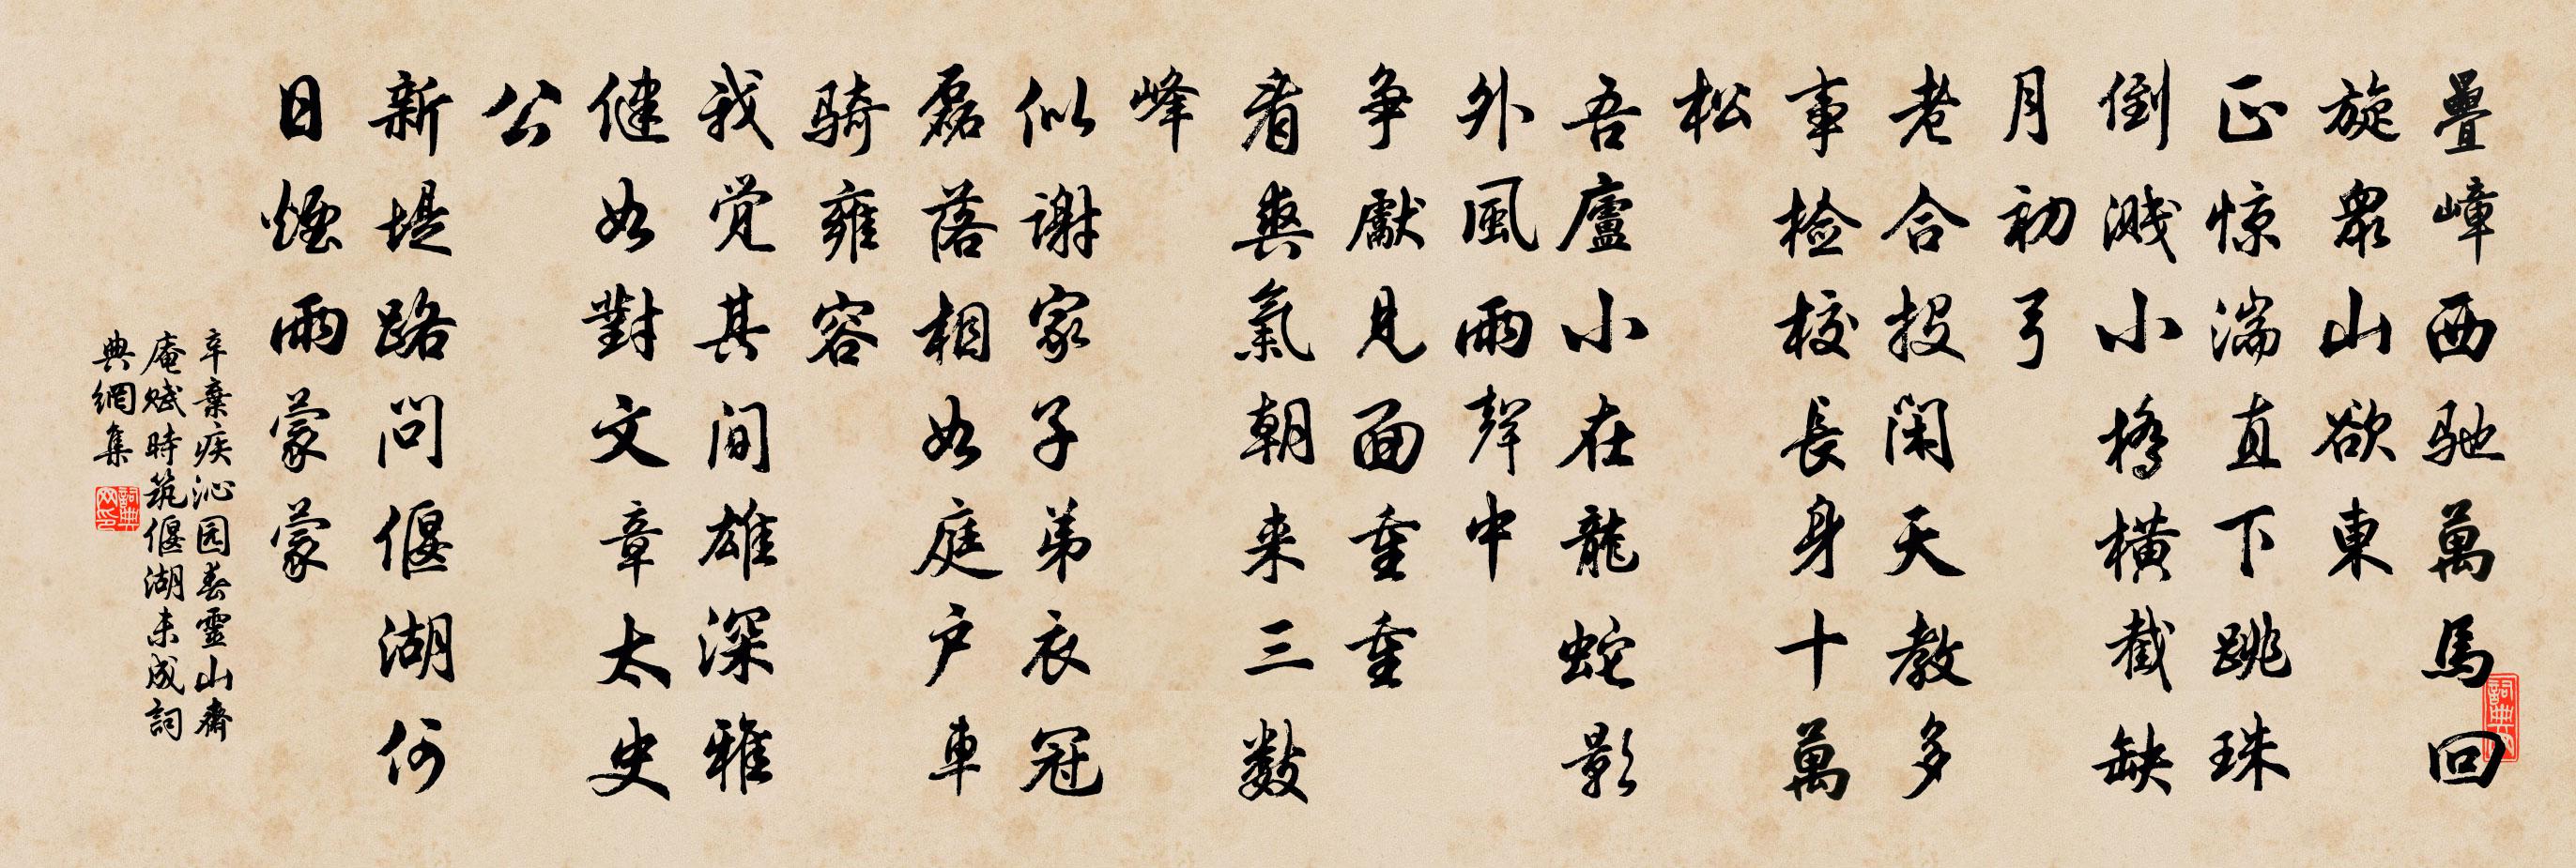 疊嶂西馳萬馬回
旋眾山欲東
正惊湍直下跳珠
倒溅小橋橫截缺
月初弓
老合投闲天教多
事检校長身十萬
松
吾廬小在龍蛇影
外風雨聲中
爭獻見面重重
看爽氣朝来三数
峰
似謝家子弟衣冠
磊落相如庭户車
骑雍容
我觉其间雄深雅
健如對文章太史
公
新堤路问偃湖何
日烟雨蒙蒙
辛棄疾沁园春靈山齋
庵赋時筑偃湖未成詞
典網集